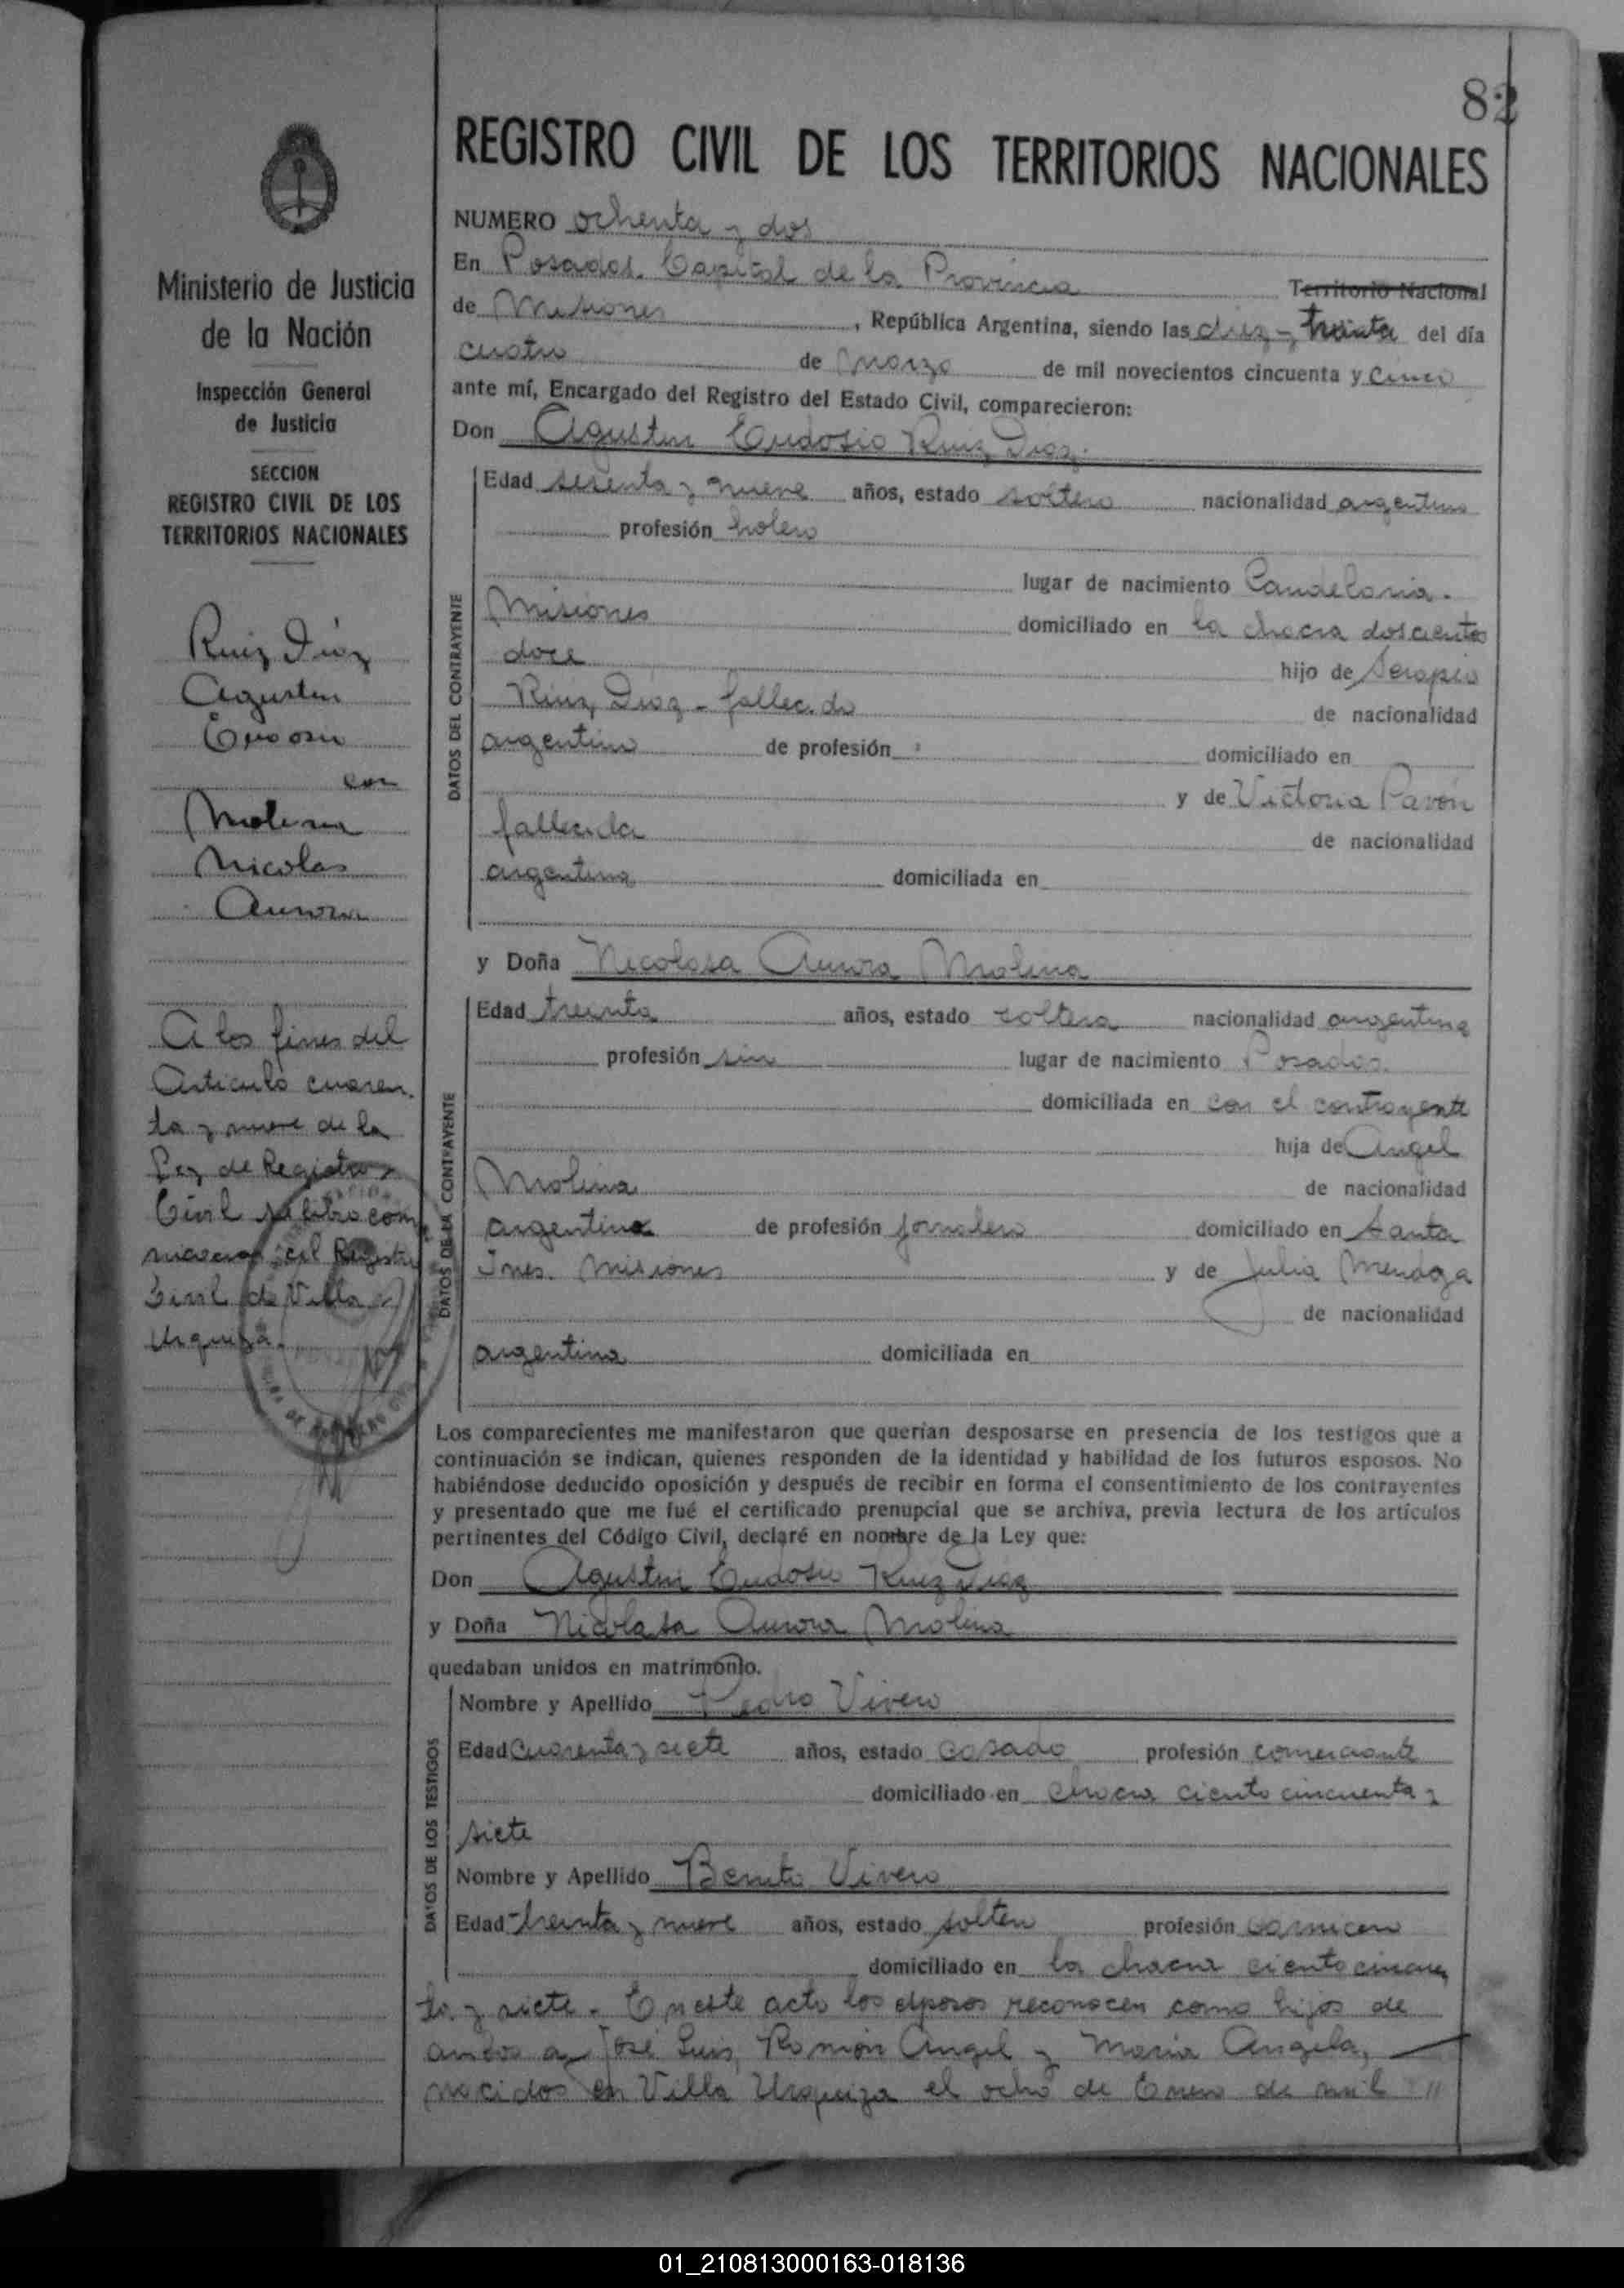 82
REGISTRO CIVIL DE LOS TERRITORIOS NACIONALES
Ministerio de Justicia
de la Nación
Inspección General
de Justicia
SECCION
REGISTRO CIVIL DE LOS
TERRITORIOS NACIONALES
Ruiz Díaz
Agustin
con
Molina
Nicolas
Aurora
A los fines del
Articulo cuaren
ta y nueve de la
Ley de Registro
Civil se libro com
al Registro
Civil de Villa
Urquiza.
NUMERO ochenta y dos
En Posadas. Capital de la Provincia Territorio Nacional
de Misiones , República Argentina, siendo las diez y treinta del día
cuatro de Marzo de mil novecientos cincuenta y cinco
ante mí, Encargado del Registro del Estado Civil, comparecieron:
Don Agustin Eudosio Ruiz Diaz.
DATOS DEL CONTRAYENTE
Edad sesenta y nueve años, estado soltero nacionalidad argentino
profesión
lugar de nacimiento Candelaria.
Misiones domiciliado en la chacra doscientos
doce hijo de Serapio
Ruiz Diaz - fallecido de nacionalidad
argentino de profesión domiciliado en
y de Victoria Pavón
fallecida de nacionalidad
argentina domiciliada en
y Doña Nicolasa Aurora Molina
DATOS DE LA CONTRAYENTE
Edad treinta años, estado soltera nacionalidad argentina
profesión sin lugar de nacimiento Posadas.
domiciliada en con el contrayente
hija de Angel
Molina de nacionalidad
argentina de profesión jornalero domiciliado en Santa
Ines. Misiones y de Julia Mendoza
de nacionalidad
argentina domiciliada en
Los comparecientes me manifestaron que querían desposarse en presencia de los testigos que a
continuación se indican, quienes responden de la identidad y habilidad de los futuros esposos. No
habiéndose deducido oposición y después de recibir en forma el consentimiento de los contrayentes
y presentado que me fué el certificado prenupcial que se archiva, previa lectura de los artículos
pertinentes del Código Civil, declaré en nombre de la Ley que:
Don Agustin Eudosio Ruiz Diaz
y Doña Nicolasa Aurora Molina
quedaban unidos en matrimonio.
DATOS DE LOS TESTIGOS
Nombre y Apellido Pedro Vivero
Edad cuarenta y siete años, estado casado profesión comerciante
domiciliado en chacra ciento cincuenta y
siete
Nombre y Apellido Benito Vivero
Edad treinta y nueve años, estado soltero profesión carnicero
domiciliado en la chacra ciento cincuen
ta y siete. En este acto los esposos reconocen como hijos de
ambos a José Luis, Ramón Angel y Maria Angela,
nacidos en Villa Urquiza el ocho de Enero de mil "
01_210813000163-018136